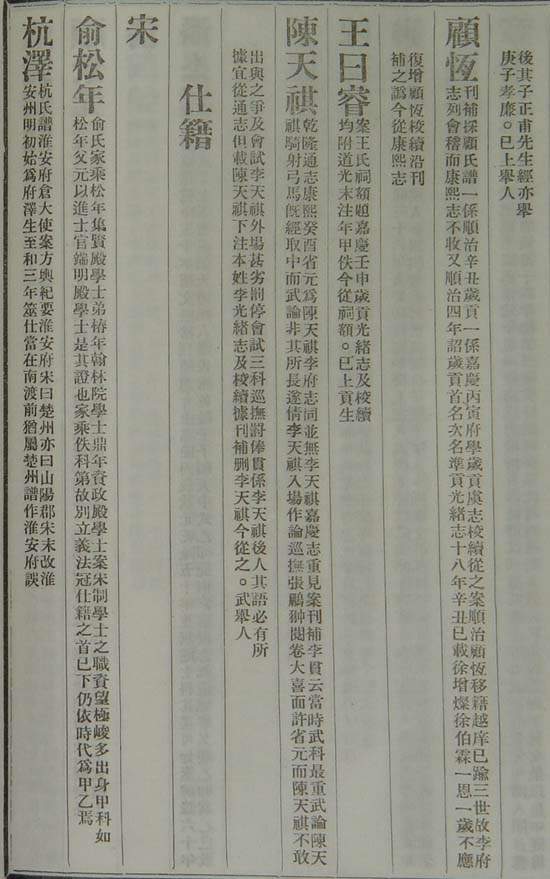 後其子正甫先生經亦舉
庚子孝廉。已上舉人
顧恆
刊補採顧氏譜一係順治辛丑歲貢一係嘉慶丙寅府學歲貢虞志校續從之案順治顧恆移籍越庠已踰三世故李府
志列會稽而康熙志不收又順治四年詔歲貢首名次名準貢光緒志十八年辛丑已載徐增燦徐伯霖一恩一歲不應
復增顧恆校續沿刊
補之譌今從康熙志
王日睿
案王氏祠額題嘉慶壬申歲貢光緒志及校續
均附道光末注年甲佚今從祠額。已上貢生
陳天祺
乾隆通志康熙癸酉省元爲陳天祺李府志同並無李天祺嘉慶志重見案刊補李貫云當時武科最重武論陳天
祺騎射弓馬旣經取中而武論非其所長遂倩李天祺入場作論巡撫張鵬翀閱卷大喜面許省元而陳天祺不敢
出與之爭及會試李天祺外場甚劣罰停會試三科巡撫罸俸貫係李天祺後人其語必有所
據宜從通志但載陳天祺下注本姓李光緒志及校續據刊補刪李天祺今從之。武舉人
仕籍
宋
俞松年
俞氏家乘松年集賢殿學士弟椿年翰林院學士鼎年資政殿學士案宋制學士之職資望極峻多出身甲科如
松年父元以進士官端明殿學士是其證也家乘佚科第故別立義法冠仕籍之首已下仍依時代爲甲乙焉
杭澤
杭氏譜淮安府倉大使案方輿紀要淮安府宋曰楚州亦曰山陽郡宋末改淮
安州明初始爲府澤生至和三年筮仕當在南渡前猶屬楚州譜作淮安府誤